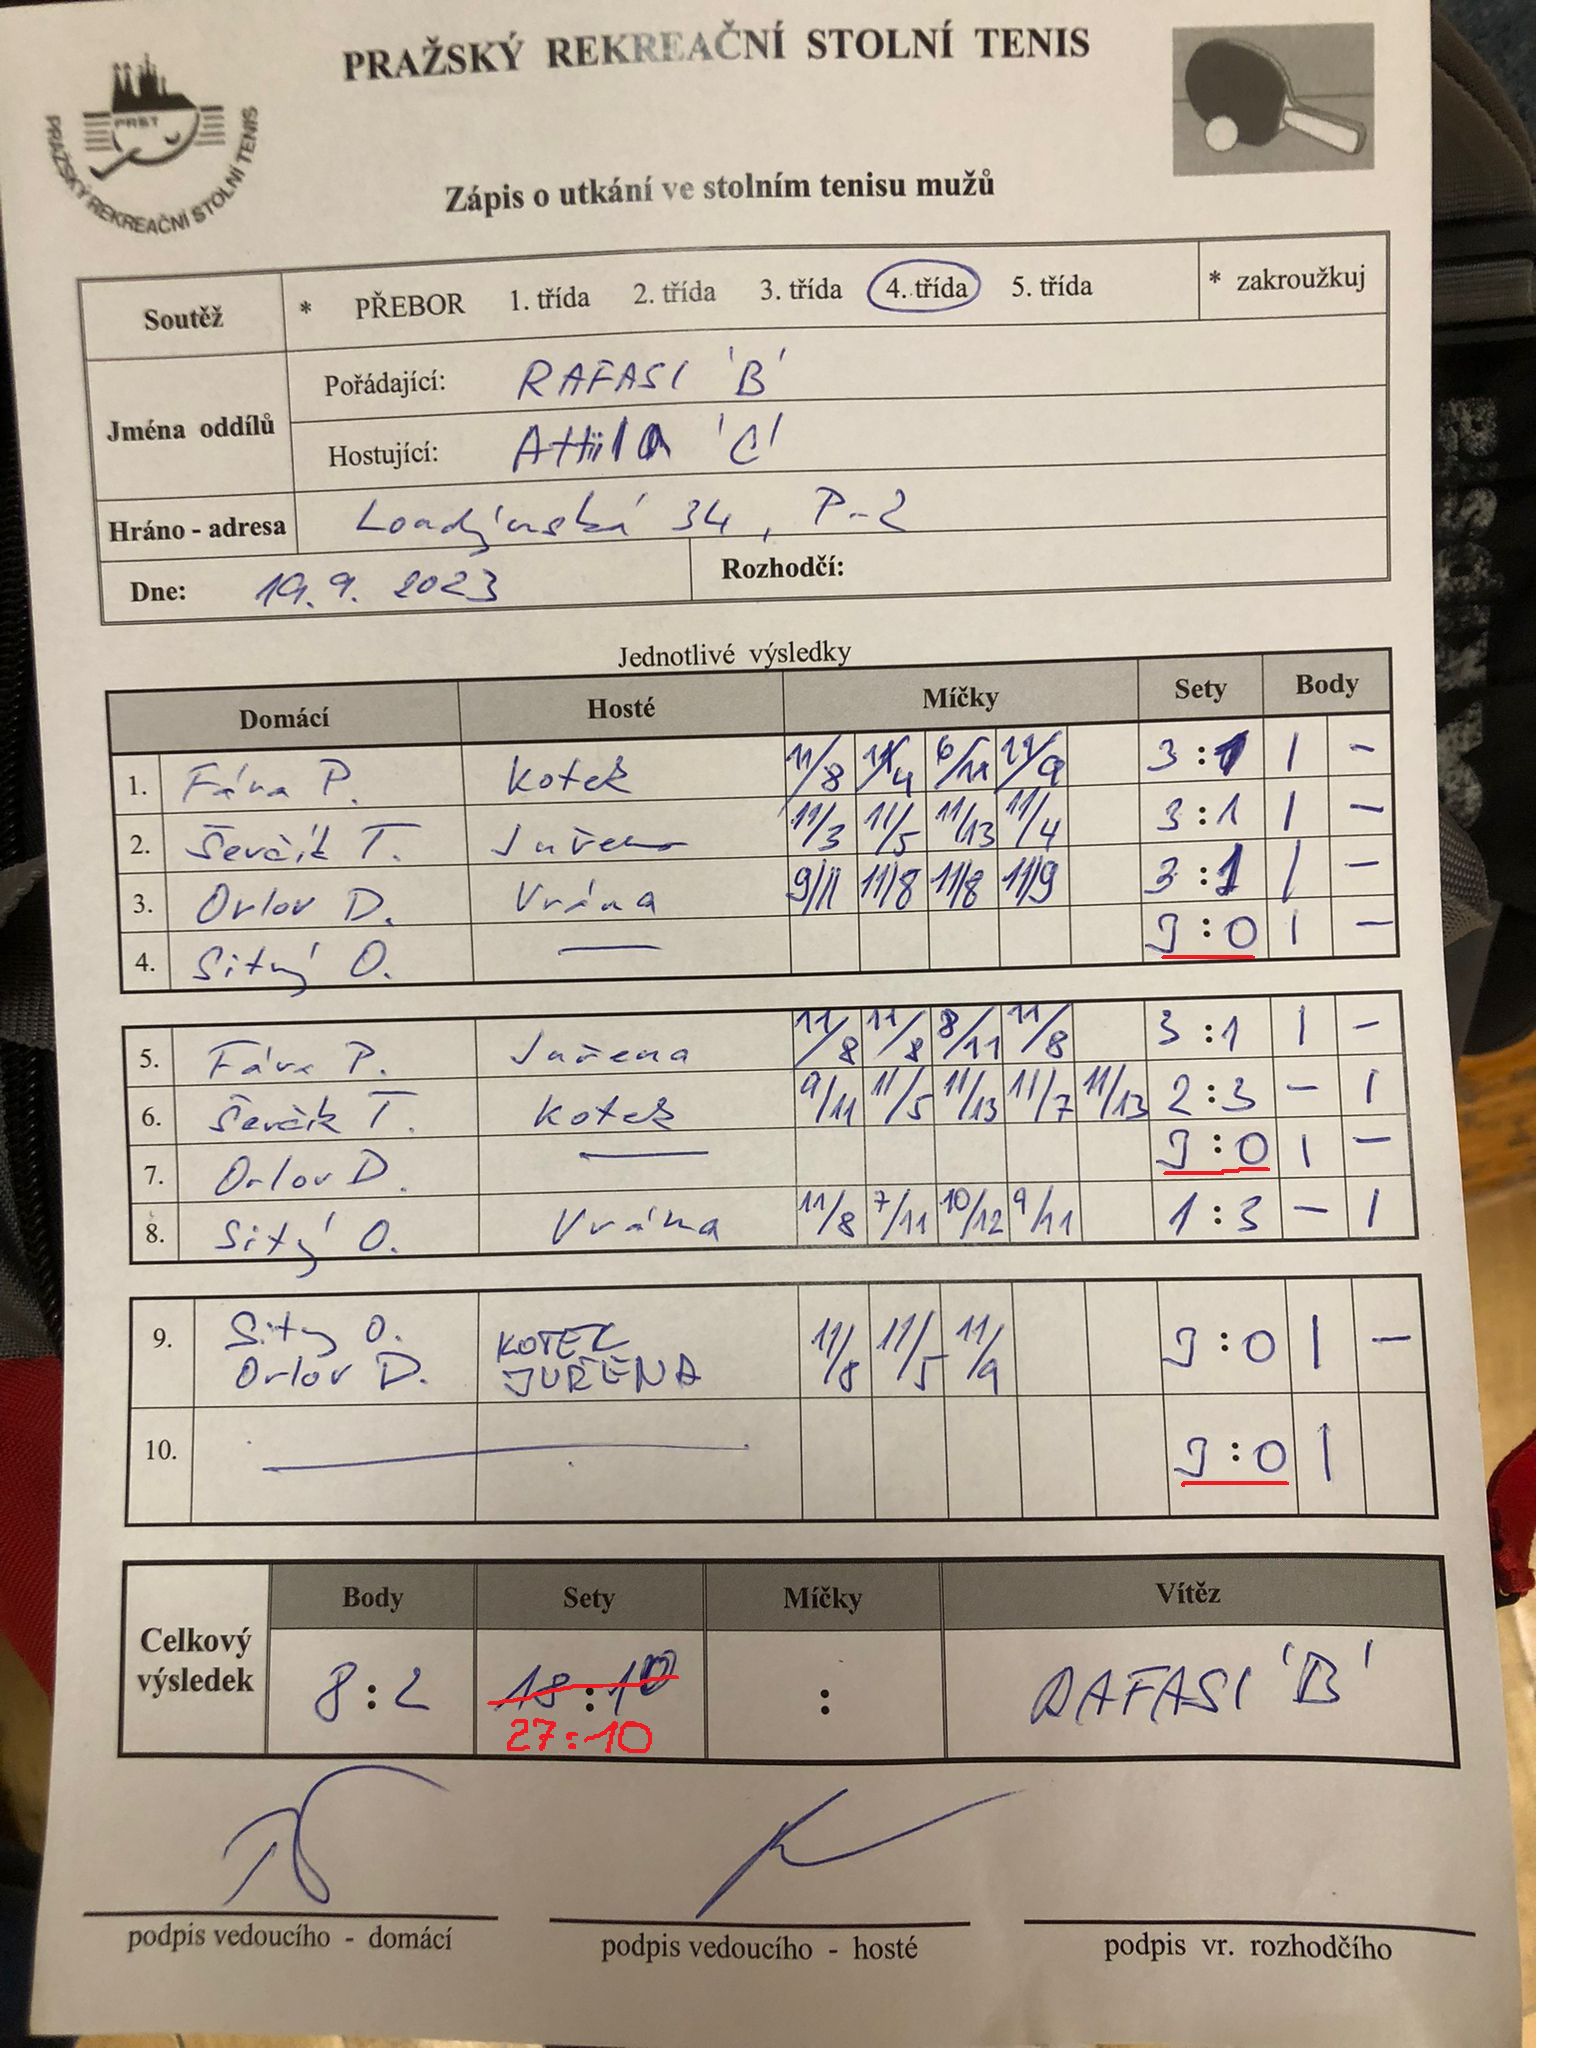 PRAŽSKÝ REKREAČNÍ STOLNÍ TENIS
PRST
PRAŽSKÝ REKREAČNÍ STOLNÍ TENIS
Zápis o utkání ve stolním tenisu mužů
Soutěž * PŘEBOR 1. třída 2. třída 3. třída 4. třída 5. třída * zakroužkuj
Jména oddílů
Pořádající: RAFASI 'B'
Hostující: Attila 'C'
Hráno - adresa Londýnská 34, P-2
Dne: 19.9. 2023 Rozhodčí:
Jednotlivé výsledky
Domácí Hosté Míčky Sety Body
1. Fára P. Kotek 11/8 11/4 6/11 11/9 3:1 1 -
2. Ševčík T. Juřena 11/3 11/5 11/13 11/4 3:1 1 -
3. Orlov D. Vrána 9/11 11/8 11/8 11/9 3:1 1 -
4. Sitný O. — 3:0 1 -
5. Fára P. Juřena 11/8 11/8 8/11 11/8 3:1 1 -
6. Ševčík T. Kotek 9/11 11/5 11/13 11/7 11/13 2:3 - 1
7. Orlov D. — 3:0 1 -
8. Sitný O. Vrána 11/8 7/11 10/12 9/11 1:3 - 1
9. Sitny O. KOTEK 11/8 11/5 11/9 3:0 1 -
Orlov D. JUŘENA
10. — 3:0 1
Celkový výsledek
Body Sety Míčky Vítěz
8:2 18:10 : RAFASI 'B'
27:10
podpis vedoucího - domácí
podpis vedoucího - hosté
podpis vr. rozhodčího